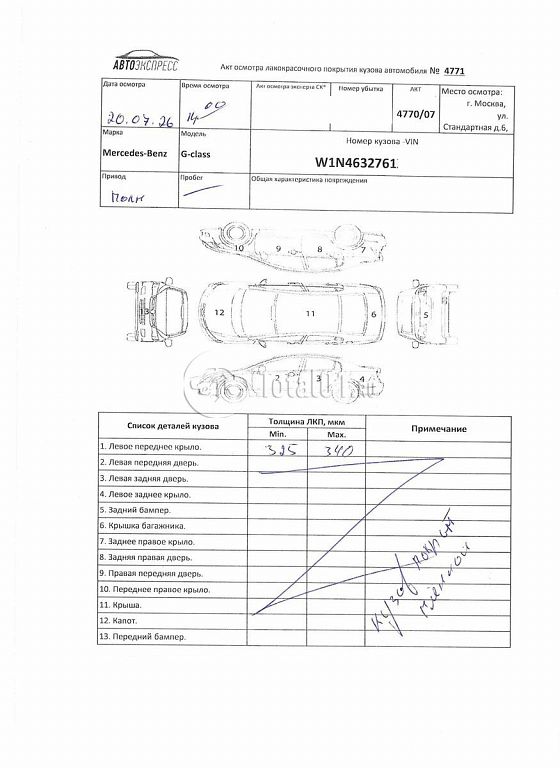 АВТОЭКСПРЕСС
Акт осмотра лакокрасочного покрытия кузова автомобиля № 4771
Дата осмотра
Время осмотра
Акт осмотра эксперта СК*
Номер убытка
АКТ
Место осмотра:
г. Москва,
ул.
Стандартная д.6,
20.07.26
14 00
4770/07
Марка
Модель
Номер кузова -VIN
Mercedes-Benz
G-class
W1N4632761
Привод
Пробег
Общая характеристика повреждения
Полн
10 9 8 7
13 12 11 6 5
1 2 3 4
Total01.ru
Список деталей кузова
Толщина ЛКП, мкм
Примечание
Min.
Max.
1. Левое переднее крыло.
325
340
2. Левая передняя дверь.
3. Левая задняя дверь.
4. Левое заднее крыло.
5. Задний бампер.
6. Крышка багажника.
7. Заднее правое крыло.
8. Задняя правая дверь.
9. Правая передняя дверь.
10. Переднее правое крыло.
11. Крыша.
12. Капот.
13. Передний бампер.
Кузов покрыт
пленкой